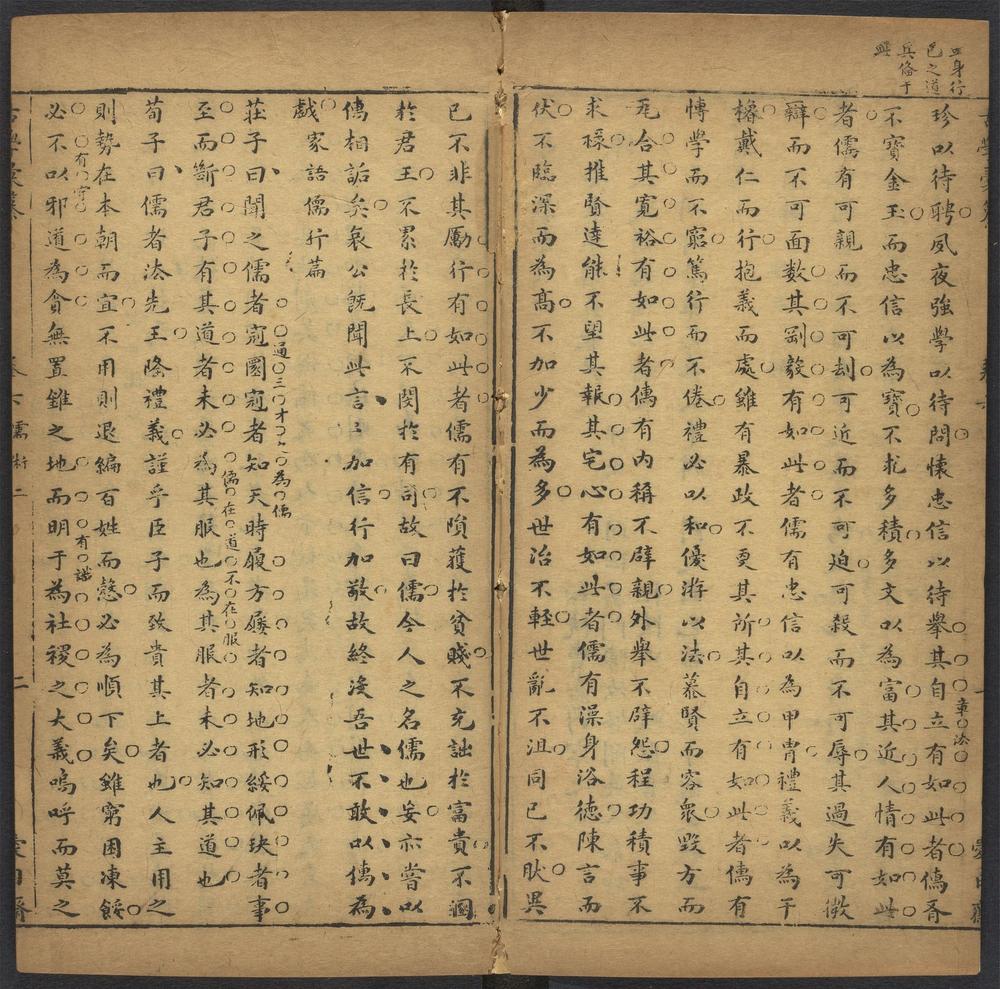 立身行
己之道
兵俻于
興
珍以待聘夙夜強學以待問懷忠信以待舉其自立有如此者儒有
章法
不寶金玉而忠信以為寶不求多積多文以為富其近人情有如此
者儒有可親而不可刼可近而不可迫可殺而不可辱其過失可微
辯而不可面數其剛毅有如此者儒有忠信以為甲冑禮義以為干
櫓戴仁而行抱義而處雖有暴政不更其所其自立有如此者儒有
博學而不窮篤行而不倦禮必以和優游以法慕賢而容衆毀方而
瓦合其寬裕有如此者儒有內稱不辟親外舉不辟怨程功積事不
求祿推賢達能不望其報其宅心有如此者儒有澡身浴德陳言而
伏不臨深而為高不加少而為多世治不輕世亂不沮同已不與異
已不非其厲行有如此者儒有不隕穫於貧賤不充詘於富貴不溷
於君王不累於長上不閔於有司故曰儒今人之名儒也妄亦嘗以
儒相詬矣哀公旣聞此言言加信行加敬故終沒吾世不敢以儒為
戲家語儒行篇
莊子曰聞之儒者冠圜冠者知天時履方屨者知地形綏佩玦者事
通三才之為儒
至而斷君子有其道者未必為其服也為其服者未必知其道也
儒在道不在服
荀子曰儒者法先王隆禮義謹乎臣子而致貴其上者也人主用之
則勢在本朝而宜不用則退編百姓而愨必為順下矣雖窮困凍餒
必不以邪道為貪無置錐之地而明于為社稷之大義嗚呼而莫之
有守
有識
卷六儒術二
二